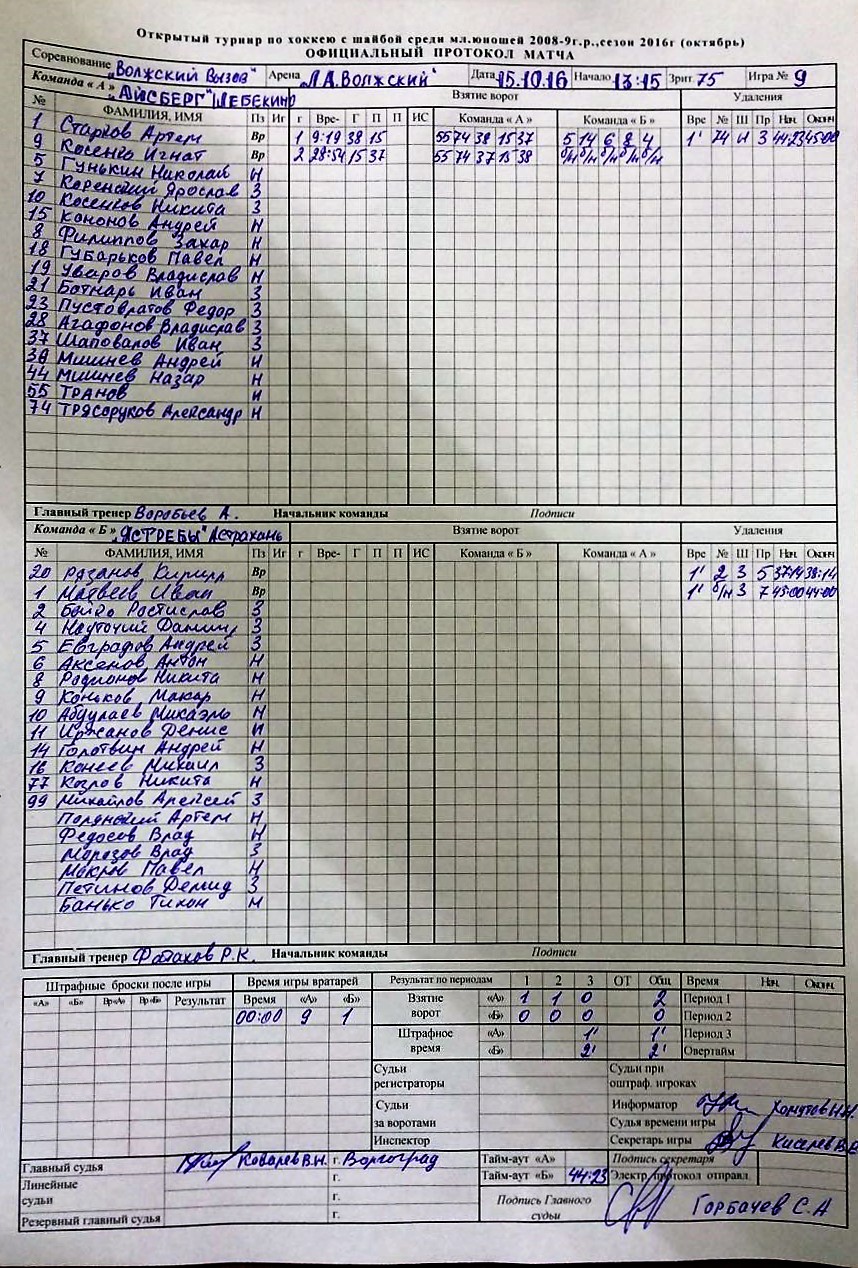 Открытый турнир по хоккею с шайбой среди мл.юношей 2008-9г.р.,сезон 2016г (октябрь)
ОФИЦИАЛЬНЫЙ ПРОТОКОЛ МАТЧА
Соревнование „Волжский Вызов" Арена „Л.А.Волжский" Дата 15.10.16 Начало 13:15 Зрит 75 Игра № 9
Команда «А» „АЙСБЕРГ" Взятие ворот Удаления
№ ФАМИЛИЯ, ИМЯ Пз Иг г Вре- Г П П ИС Команда «А» Команда «Б» Вре № Ш Пр Нач. Оконч
1 Старков Артем Вр 1 9:19 38 15 55 74 38 15 37 5 14 6 8 4 1' 74 И 3 44:23 45:00
9 Косенко Игнат Вр 2 28:54 15 37 55 74 37 15 38 б/н б/н б/н б/н б/н
5 Гунькин Николай Н
7 Коренский Ярослав З
10 Косенков Никита З
15 Кононов Андрей Н
8 Филиппов Захар Н
18 Губарьков Павел Н
19 Уваров Владислав Н
21 Ботнарь Иван З
23 Пустовратов Федор З
28 Агафонов Владислав З
37 Шаповалов Иван З
38 Мишнев Андрей Н
44 Мишнев Назар Н
55 Транов Н
74 Трясоруков Александр Н
Главный тренер Воробьев А. Начальник команды Подписи
Команда «Б» „ЯСТРЕБЫ" Астрахань Взятие ворот Удаления
№ ФАМИЛИЯ, ИМЯ Пз Иг г Вре- Г П П ИС Команда «Б» Команда «А» Вре № Ш Пр Нач. Оконч
20 Рязанов Кирилл Вр 1' 2 3 5 37:14 38:14
1 Матвеев Иван Вр 1' б/н 3 7 45:00 44:00
2 Бойко Ростислав З
4 З
5 Евграфов Андрей З
6 Аксенов Антон Н
8 Родионов Никита Н
9 Коньков Макар Н
10 Абдулаев Микаэль Н
11 Иржанов Денис Н
14 Голотвин Андрей Н
16 Конеев Михаил З
77 Козлов Никита Н
99 Михайлов Алексей З
Полянский Артем Н
Федосов Влад Н
Морозов Влад З
Мокров Павел Н
Петинов Демид З
Банько Тихон Н
Главный тренер Фатахов Р.К. Начальник команды Подписи
Штрафные броски после игры Время игры вратарей Результат по периодам 1 2 3 ОТ Общ Время Нач. Оконч.
«А» «Б» Вр«А» Вр«Б» Результат Время «А» «Б» Взятие ворот «А» 1 1 0 2 Период 1
00:00 9 1 «Б» 0 0 0 0 Период 2
Штрафное время «А» 1' 1' Период 3
«Б» 2' 2' Овертайм
Судьи регистраторы Судьи при оштраф. игроках
Судьи за воротами Информатор Хомутов Н.Н.
Судья времени игры
Инспектор Секретарь игры Киселев В.Е
Главный судья Ковалев В.Н. г. Волгоград Тайм-аут «А» Подпись секретаря
Линейные судьи г. Тайм-аут «Б» 44:23 Электр. протокол отправл.
г.
Резервный главный судья г. Подпись Главного судьи Горбачев С.А